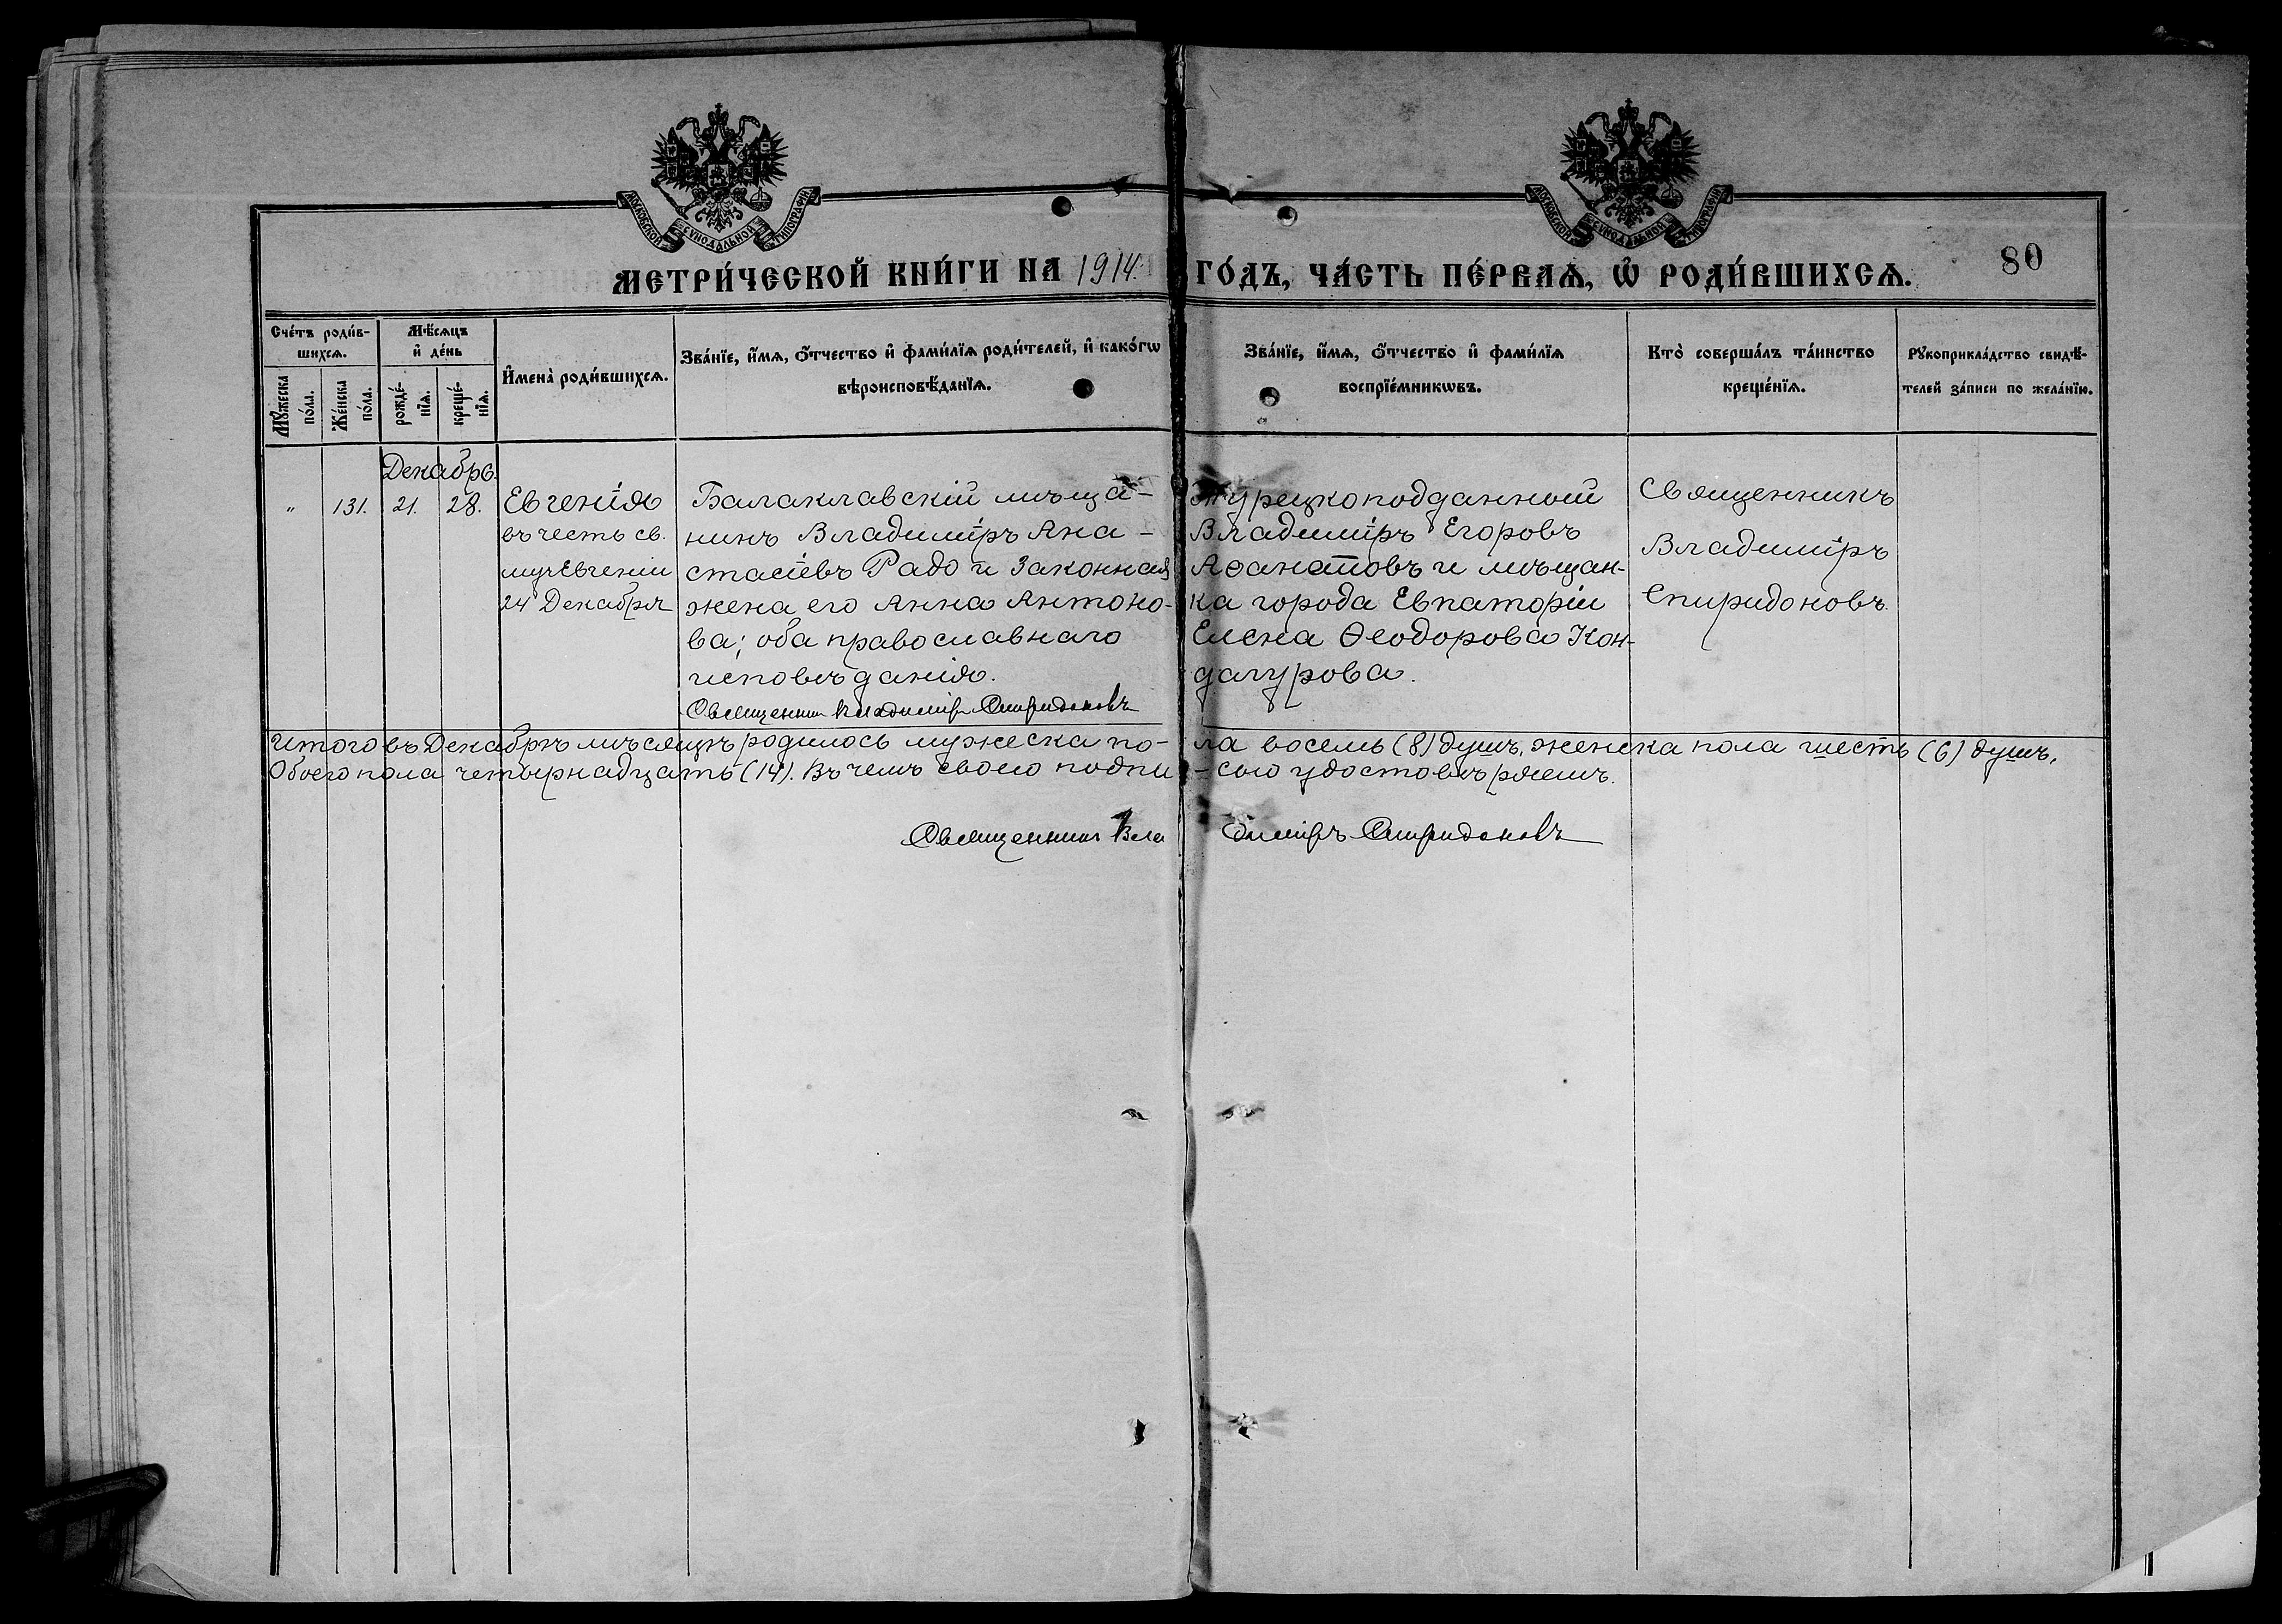 МОСКОВСКОЙ СѴНОДАЛЬНОЙ ТИПОГРАФІИ
МОСКОВСКОЙ СѴНОДАЛЬНОЙ ТИПОГРАФІИ
МЕТРИ́ЧЕСКОЙ КНИ́ГИ НА 1914. ГО́ДЪ, ЧА́СТЬ ПЕ́РВАѦ, Ѿ РОДИ́ВШИХСѦ.
80
Сче́тъ роди́в-
шихсѧ.
Мꙋ́жеска по́ла.
Же́нска по́ла.
Мѣ́сѧцъ
и҆ де́нь
рожде́-нїѧ.
креще́-нїѧ.
И҆мена̀ роди́вшихсѧ.
Зва́нїе, и҆́мѧ, ѻ҆́тчество и҆ фами́лїѧ роди́телей, и҆ како́гѡ
вѣроисповѣ́данїѧ.
Зва́нїе, и҆́мѧ, ѻ҆́тчество и҆ фами́лїѧ
воспрїе́мникѡвъ.
Кто̀ соверша́лъ та́инство
креще́нїѧ.
Рꙋкоприкла́дство свидѣ́-
телей за́писи по жела́нїю.
Декабрь.
„ 131. 21. 28.
Евгенія
въ честь св.
муч Евгеніи
24 Декабря
Балаклавскій мѣща-
нинъ Владиміръ Ана-
стасіевъ Радо и законная
жена его Анна Антоно-
ва; оба православнаго
исповѣданія.
Священникъ Владиміръ Спиридоновъ
Турецкоподданный
Владиміръ Егоровъ
Аѳанатовъ и мѣщан-
ка города Евпаторіи
Елена Ѳеодорова Кон-
дагурова.
Священникъ
Владиміръ
Спиридоновъ.
Итого въ Декабрѣ мѣсяцѣ родилось мужеска по-ла восемь (8) душъ, женска пола шесть (6) душъ,
Обоего пола четырнадцать (14). Въ чемъ своею подпи-сью удостовѣряемъ.
Священникъ Владиміръ Спиридоновъ